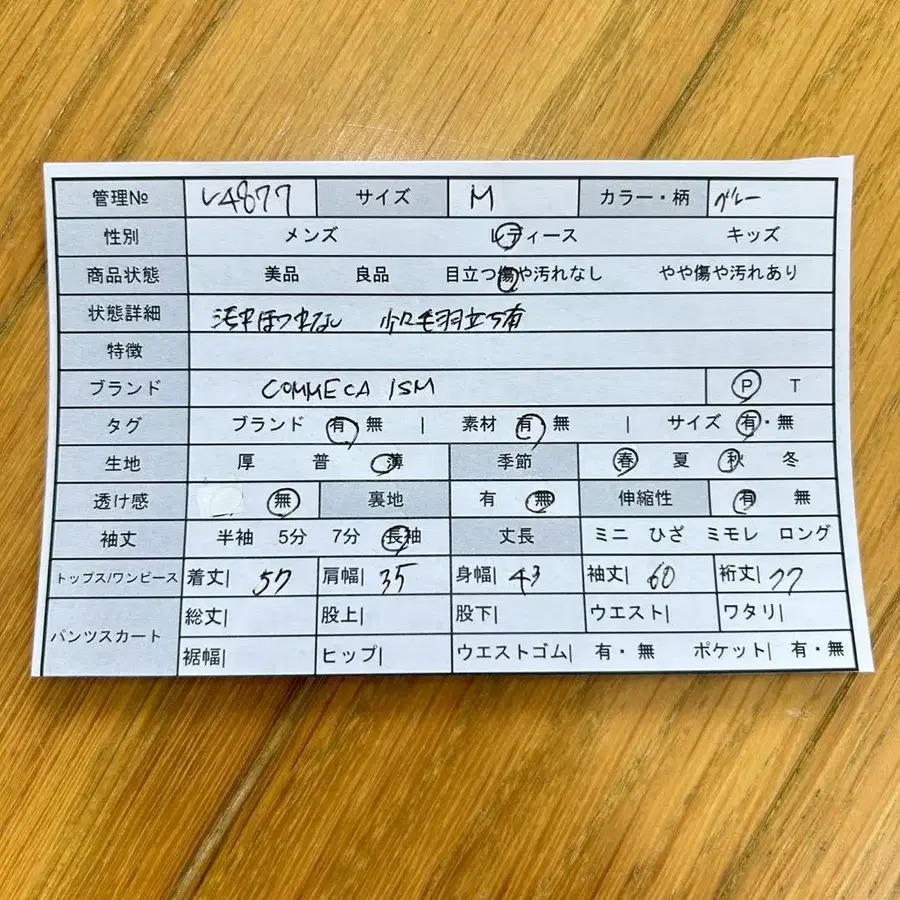 管理№ L4877 サイズ M カラー・柄 グレー
性別 メンズ レディース キッズ
商品状態 美品 良品 目立つ傷や汚れなし やや傷や汚れあり
状態詳細 汚れほつれなし 少し毛羽立ち有
特徴
ブランド COMMECA ISM P T
タグ ブランド 有 無 | 素材 有 無 | サイズ 有・無
生地 厚 普 薄 季節 春 夏 秋 冬
透け感 無 裏地 有 無 伸縮性 有 無
袖丈 半袖 5分 7分 長袖 丈長 ミニ ひざ ミモレ ロング
トップス/ワンピース 着丈| 57 肩幅| 35 身幅| 43 袖丈| 60 裄丈| 77
パンツスカート 総丈| 股上| 股下| ウエスト| ワタリ|
裾幅| ヒップ| ウエストゴム| 有・無 ポケット| 有・無